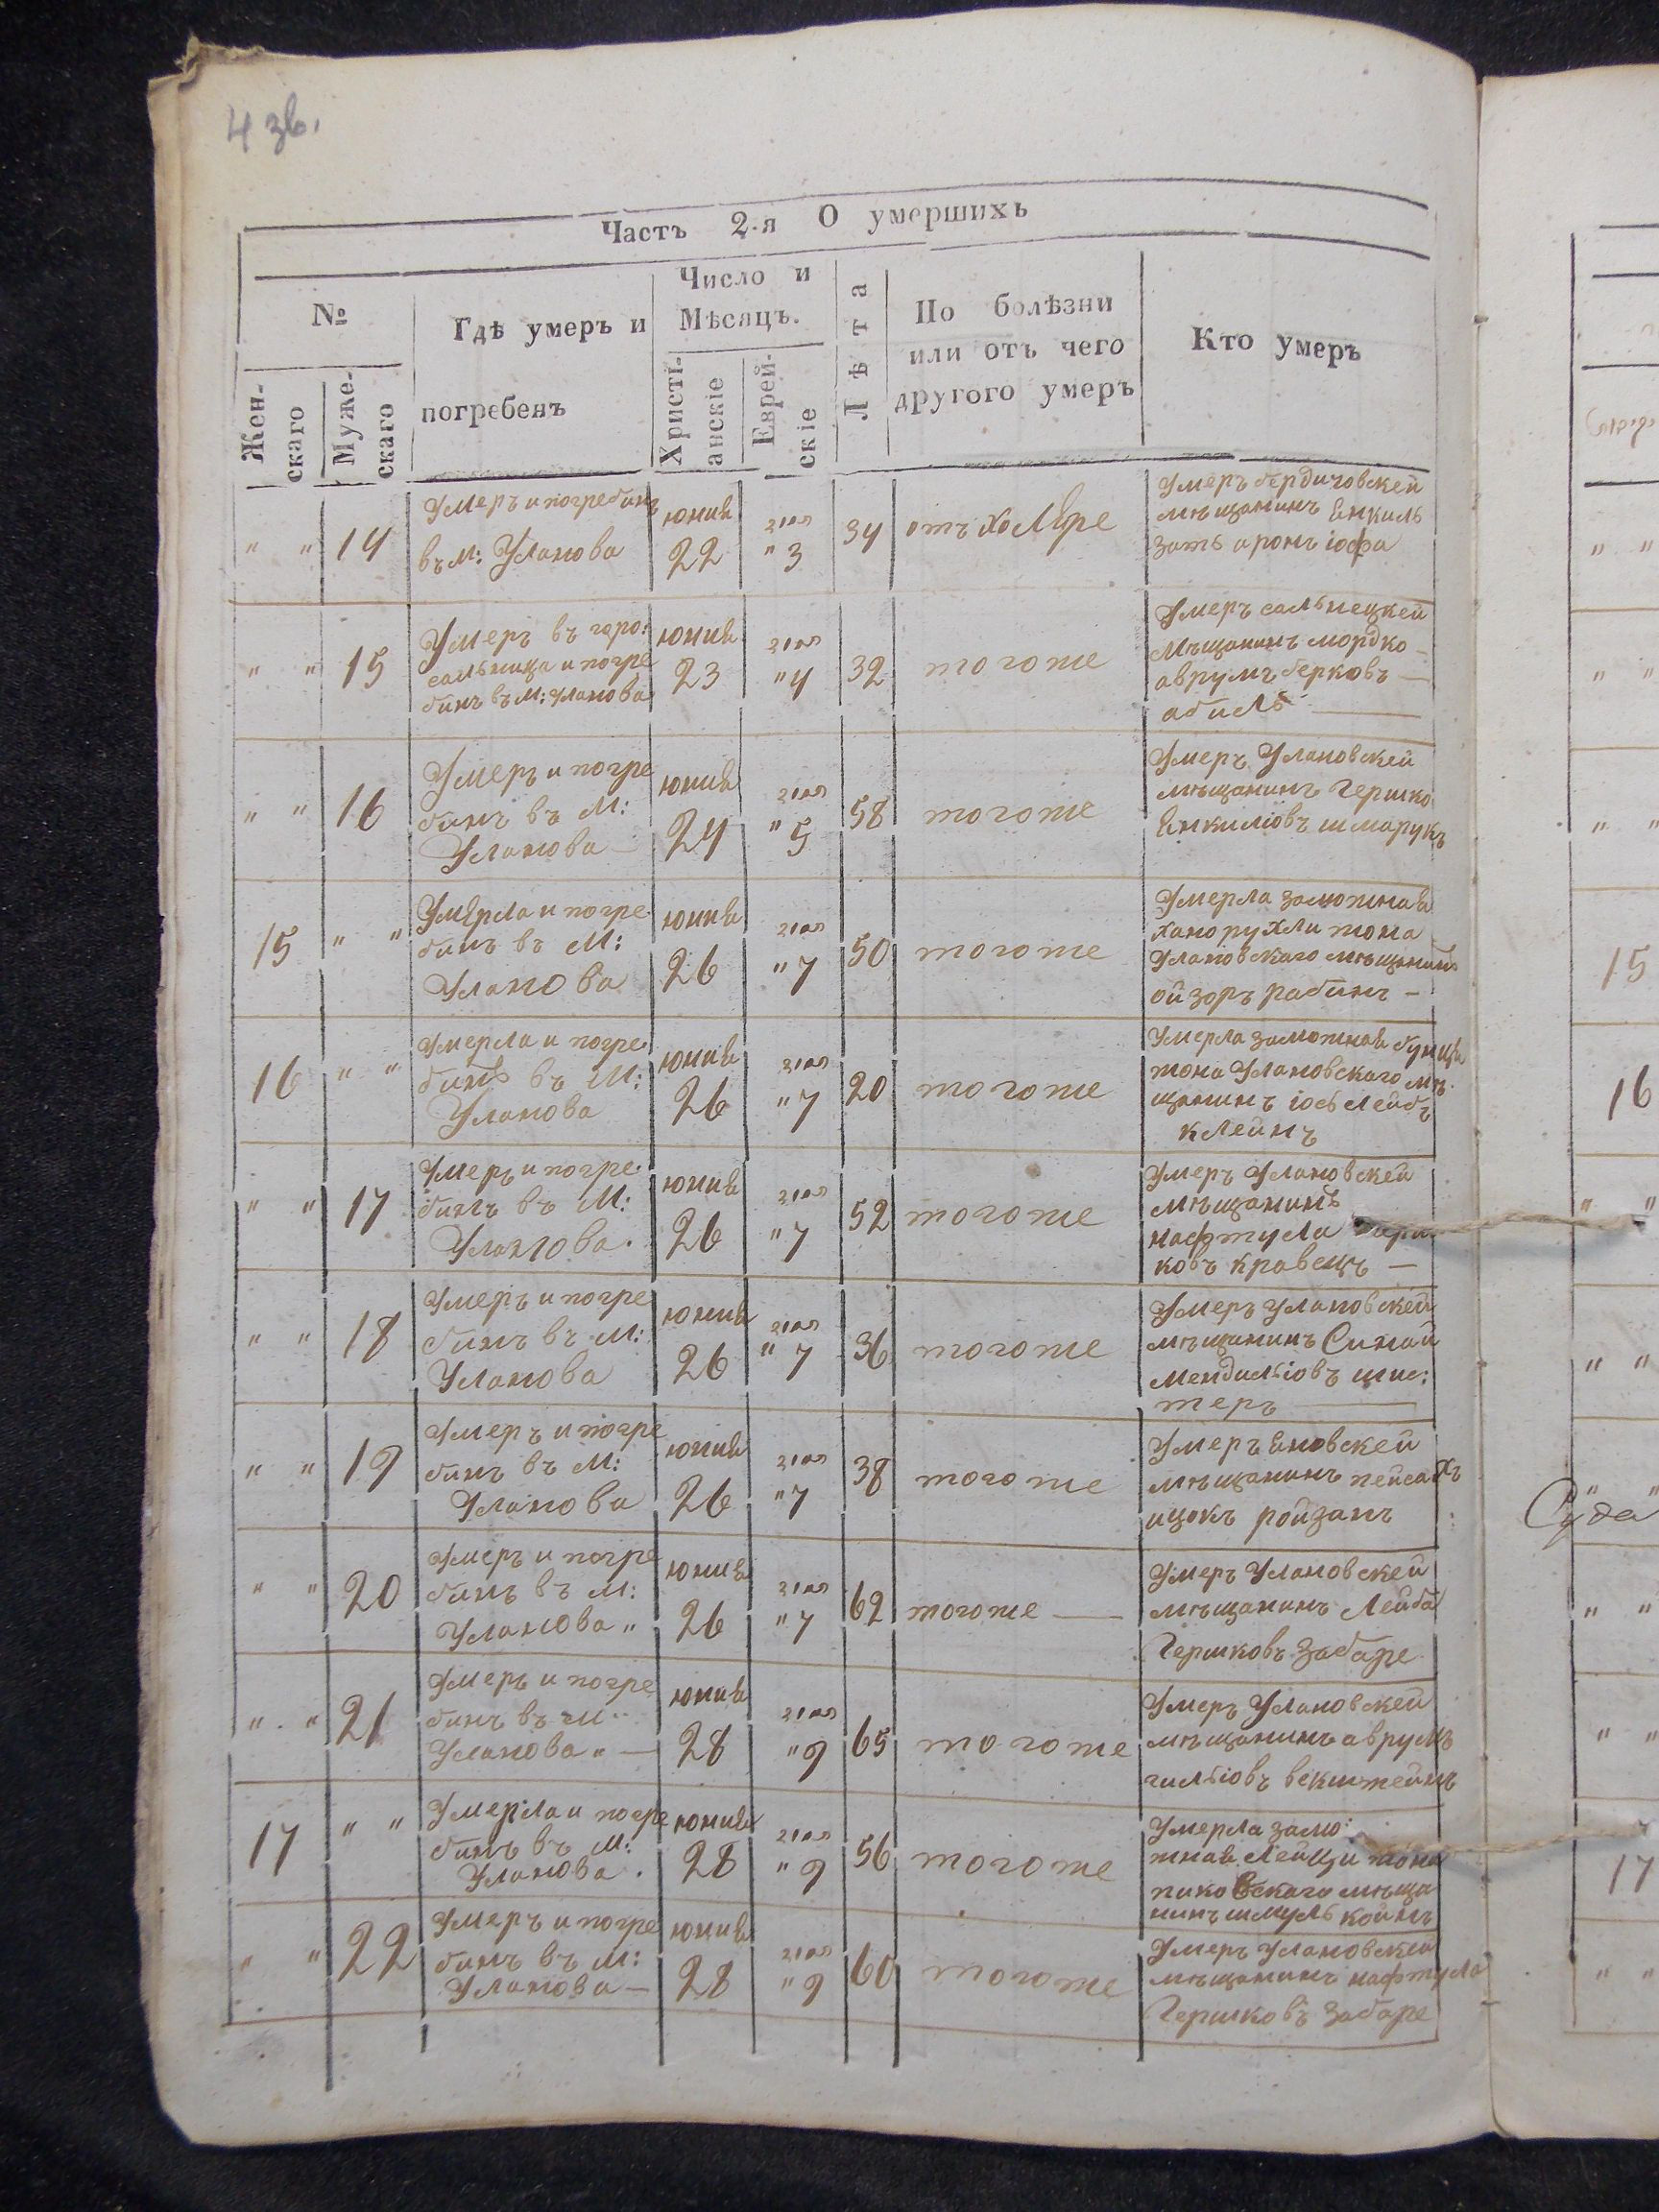 4 зв.
Часть 2-я О умершихъ
№
Жен-
скаго
Муже-
скаго
Гдѣ умеръ и
погребенъ
Число и
Мѣсяцъ.
Христі-
анскіе
Еврей-
скіе
Лѣта
По болѣзни
или отъ чего
другого умеръ
Кто умеръ
" " 14
Умеръ и погребинъ
въ м: Уланова
юнив
22
" 3
34
отъ холѣре
Умеръ бердичовскей
мѣщанинъ Енкиль
зать аронъ іофа
" " 15
Умеръ въ горо:
сальница и погре
бинъ въ м: Уланова
юнив
23
" 4
32
тогоже
Умеръ сальнецкей
мѣщанинъ мордко
аврумъ берковъ —
абиль —
" " 16
Умеръ и погре
бинъ въ м:
Уланова —
юнив
24
" 5
58
тогоже
Умеръ Улановскей
мѣщанинъ Гершко
Енкиліовъ шмарукъ
15 " "
Умерла и погре
бинъ въ м:
Уланова
юнив
26
" 7
50
тогоже
Умерла замюжнав
ханорухли жона
Улановскаго мѣщанинъ
ойзоръ рабинъ —
16 " "
Умерла и погре
бинъ въ м:
Уланова
юнив
26
" 7
20
тогоже
Умерла заможнав
жона Улановскаго мѣ
щанинъ іось лейбъ
клейнъ
" " 17
Умеръ и погре
бинъ въ м:
Уланова.
юнив
26
" 7
52
тогоже
Умеръ Улановскей
мѣщанинъ
нафтула
ковъ кравецъ —
" " 18
Умеръ и погре
бинъ въ м:
Уланова
юнив
26
" 7
36
тогоже
Умеръ Улановскей
мѣщанинъ Синай
мендильіовъ шис:
теръ —
" " 19
Умеръ и погре
бинъ въ м:
Уланова
юнив
26
" 7
38
тогоже
Умеръ Еновскей
мѣщанинъ пейсахъ
ицокъ ройзанъ
" " 20
Умеръ и погре
бинъ въ м:
Уланова "
юнив
26
" 7
62
тогоже —
Умеръ Улановскей
мѣщанинъ Лейба
Гершковъ забаре
" " 21
Умеръ и погре
бинъ въ м:
Уланова " —
юнив
28
" 9
65
тогоже
Умеръ Улановскей
мѣщанинъ аврумъ
17 " "
Умерла и погре
бинъ въ м:
Уланова.
юнив
28
" 9
56
тогоже
Умерла замю:
жнав Лейци жона
пиковскаго мѣща
нинъ шмуль койнъ
" " 22
Умеръ и погре
бинъ въ м:
Уланова —
юнив
28
" 9
60
тогоже
Умеръ Улановскей
мѣщанинъ нафтула
Гершковъ забаре
" "
" "
" "
15
16
" "
" "
" "
" "
" "
17
" "